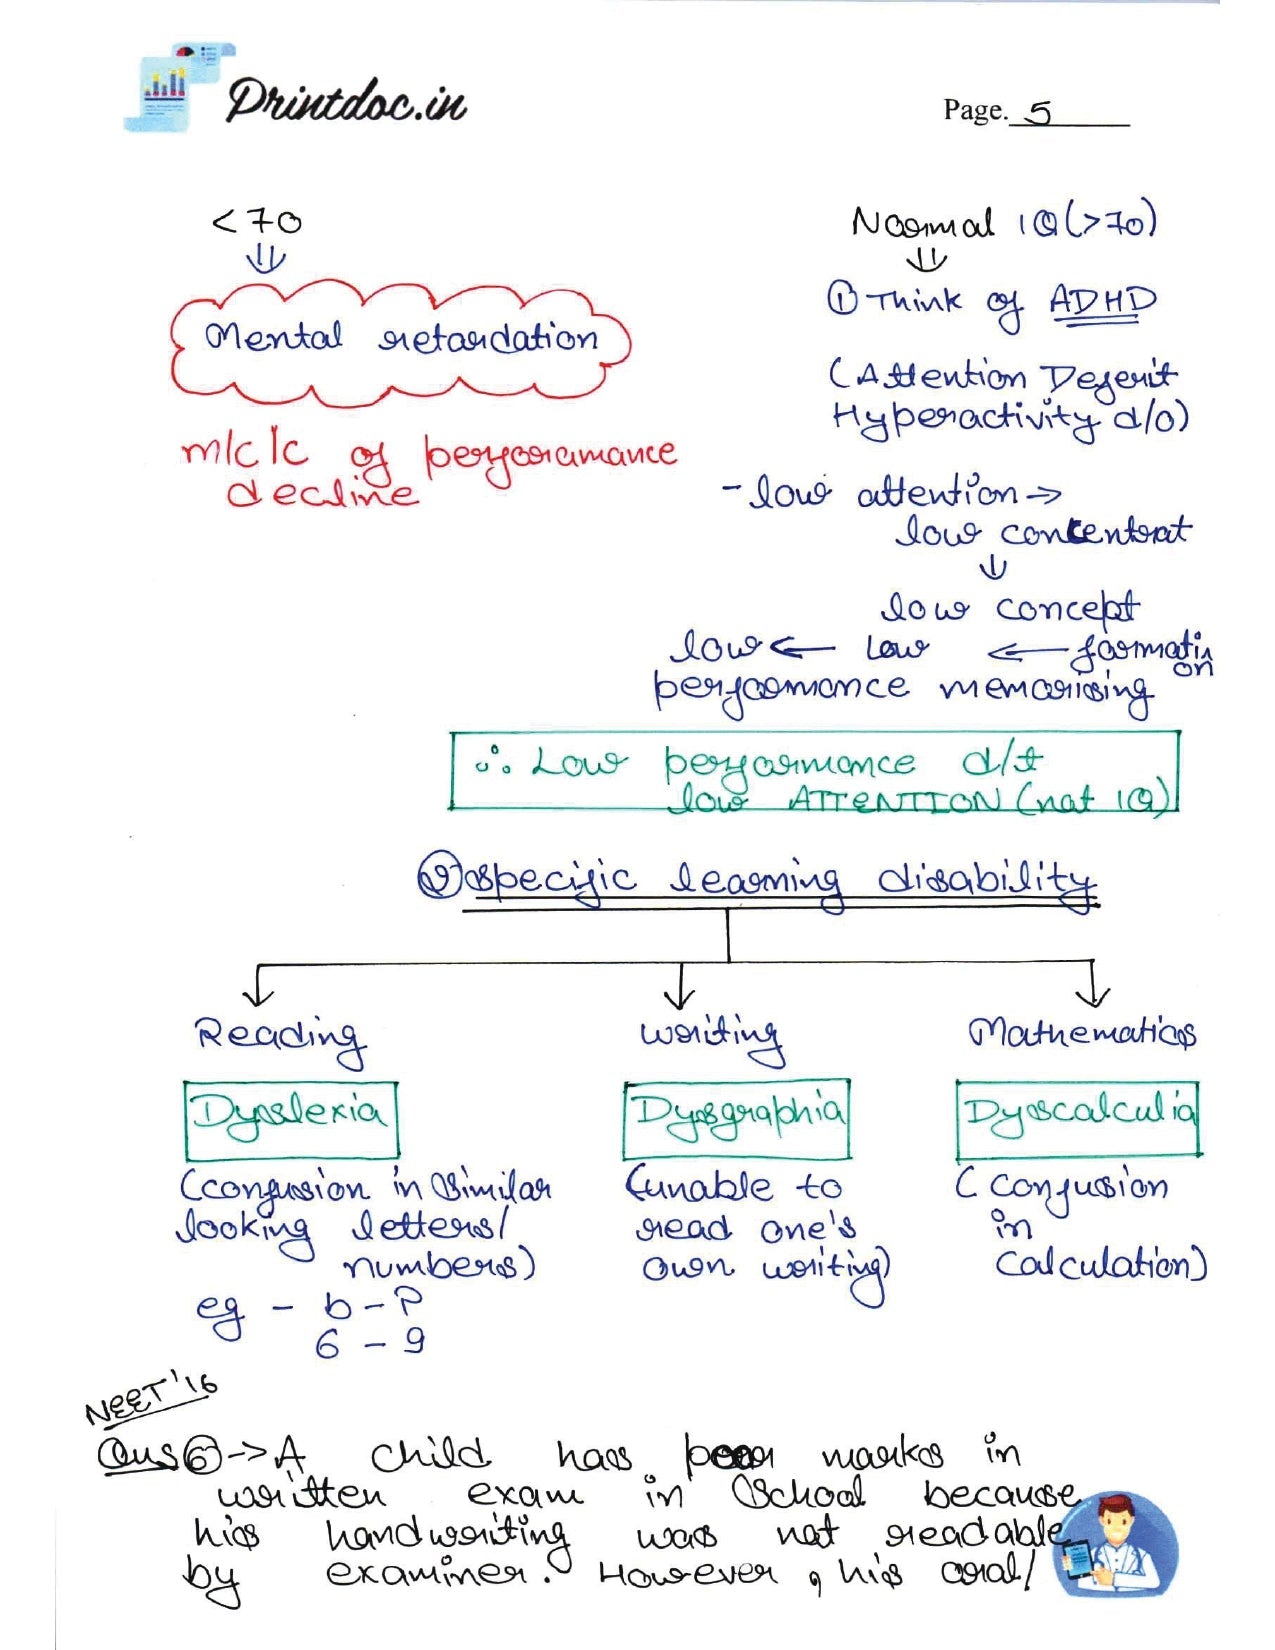 Printdoc.in
Page. 5
<70
Normal IQ (>70)
⇓
⇓
① Think of ADHD
Mental retardation
(Attention Deferit
Hyperactivity d/o)
m/c/c of perforamance
decline
- low attention →
low concentrat
↓
low concept
low ← Low ← formatin
on
performance memorising
∴ Low performance d/t
low ATTENTION (not IQ)
② specific learning disability
Reading Writing Mathematics
Dyslexia Dysgraphia Dyscalculia
(confusion in similar (unable to ( confusion
looking letters/ read one's in
numbers) own writing) calculation)
eg - b - P
6 - 9
NEET'16
Ques ⑥ → A child has poor marks in
written exam in School because
his handwriting was not readable
by examiner. However, his oral/